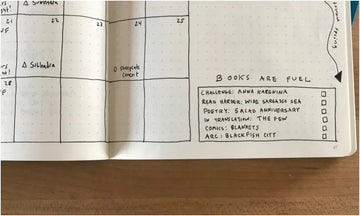 22
23
24
25
Δ Siddendra
BOOKS ARE FUEL
CHALLENGE: ANNA KARENINA
READ HARDER: WIDE SARGASSO SEA
POETRY: SALAD ANNIVERSARY
IN TRANSLATION: THE FEW
COMICS: BLANKETS
ARC: BLACKFISH CITY
28